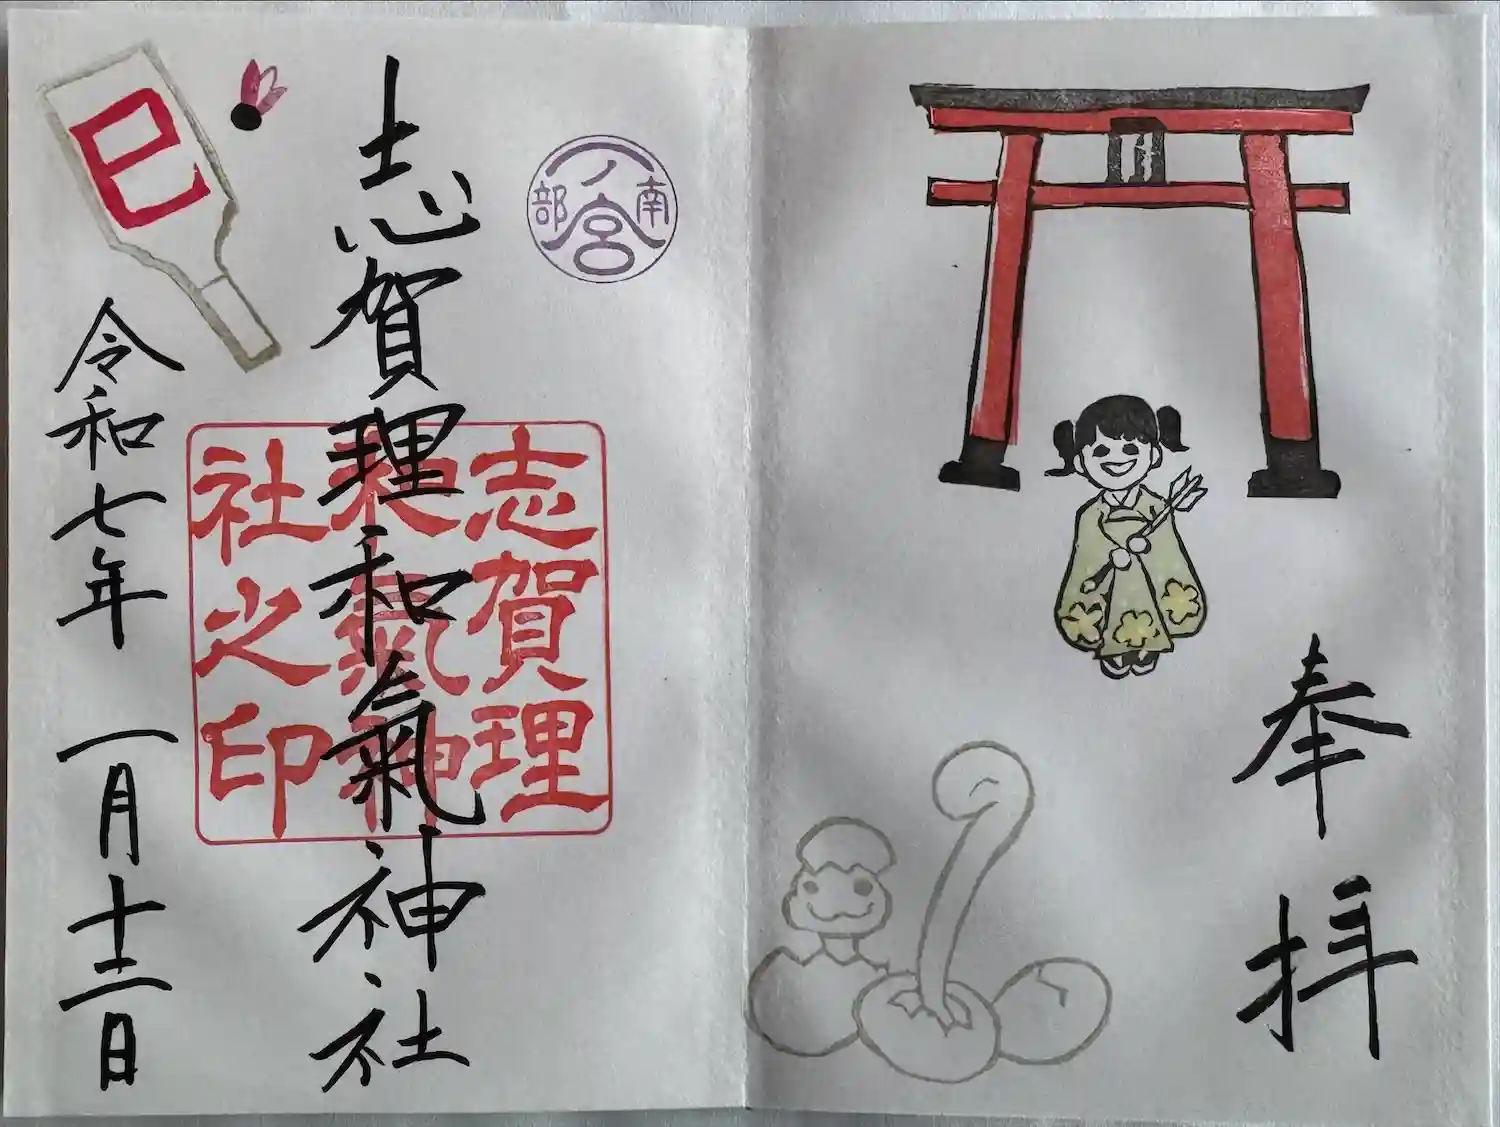 奉拝
南部
一ノ宮
志賀理和氣神社
志賀理
和氣神
社之印
巳
令和七年 一月十二日